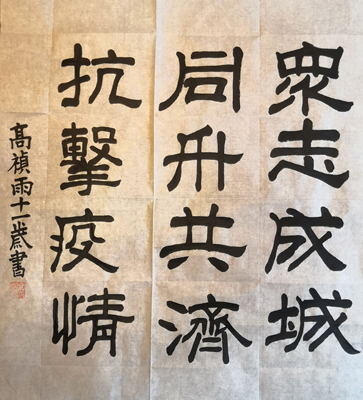 眾志成城
同舟共濟
抗擊疫情
高禎雨十一歲書